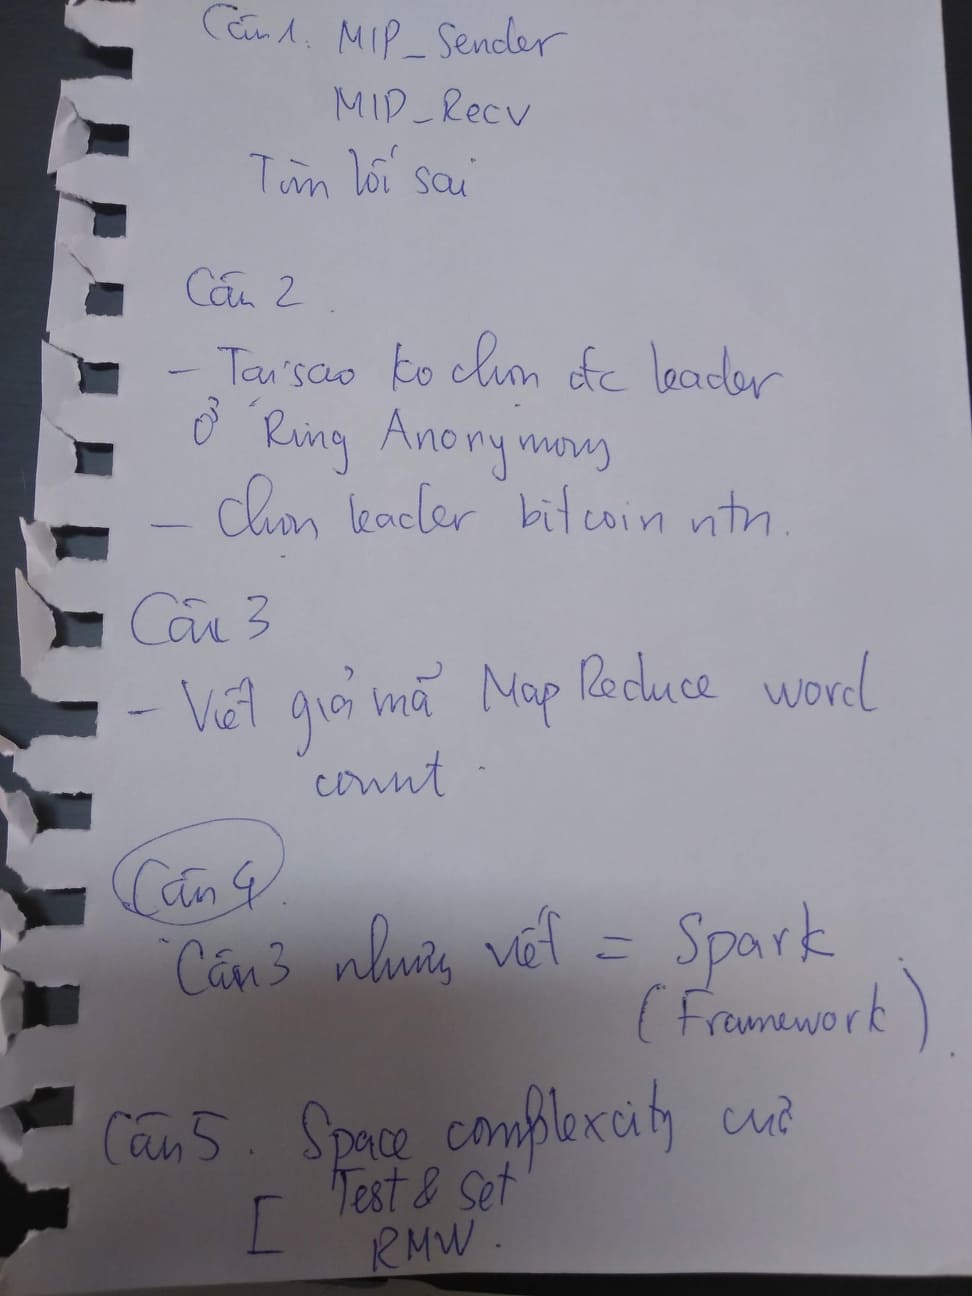 Câu 1. MIP_Sender
MIP_Recv
Tìm lỗi sai
Câu 2.
- Tại sao ko chọn đc leader
ở Ring Anonymous
- Chọn leader bitcoin ntn.
Câu 3
- Viết giả mã MapReduce word
count.
Câu 4.
Câu 3 nhưng viết = Spark
(Framework).
Câu 5. Space complexcity của
[ Test & Set
RMW.